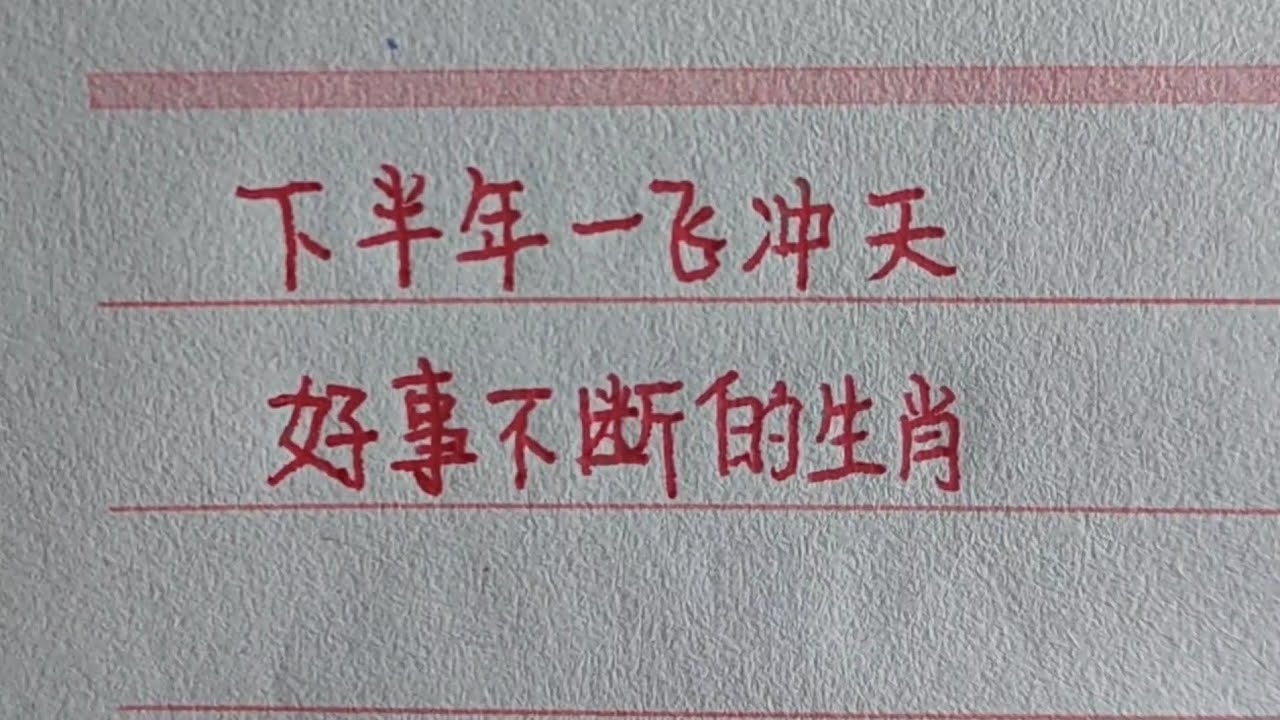 下半年一飞冲天
好事不断的生肖